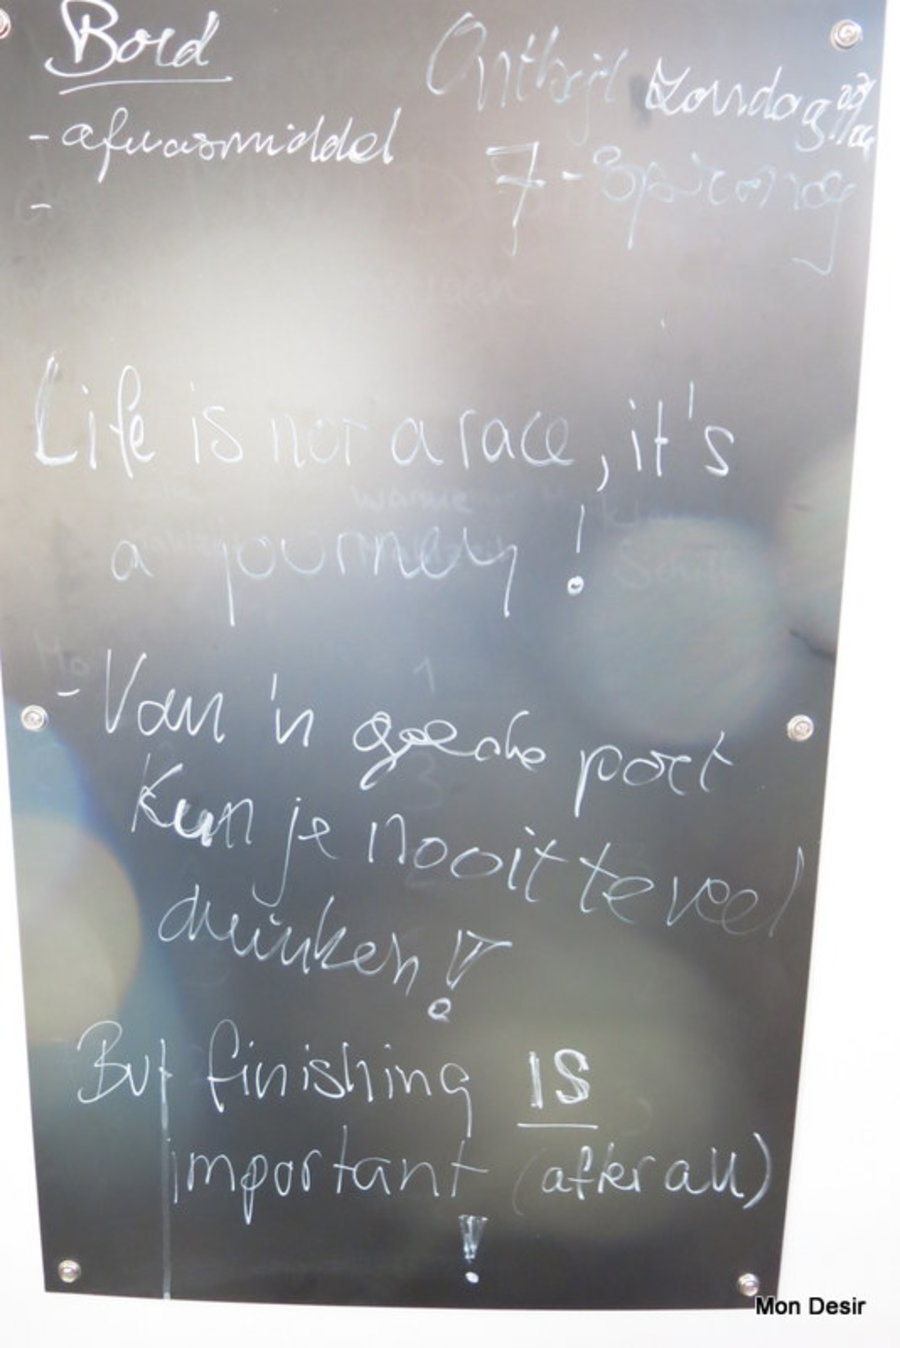 Bord
Ontbijt zondag
- afwasmiddel
7 -
-
Life is not a race, it's
a journey!
- Van 'n goede port
Kun je nooit te veel
drinken!
But finishing IS
important (after all)
!
Mon Desir